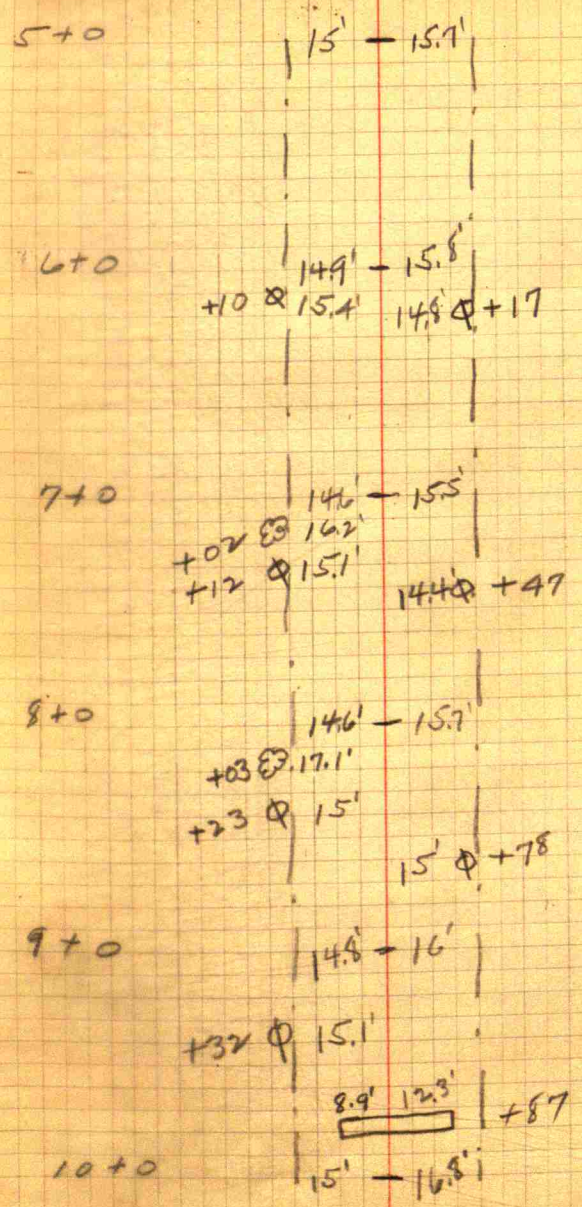 5+0 15' — 15.7'
6+0 14.9' — 15.8'
+10 15.4' 14.8' +17
7+0 14.6' — 15.5'
+02 16.2'
+12 15.1' 14.4' +47
8+0 14.6' — 15.7'
+03 17.1'
+23 15'
15' +78
9+0 14.8' — 16'
+32 15.1'
8.9' 12.3' +87
10+0 15' — 16.8'